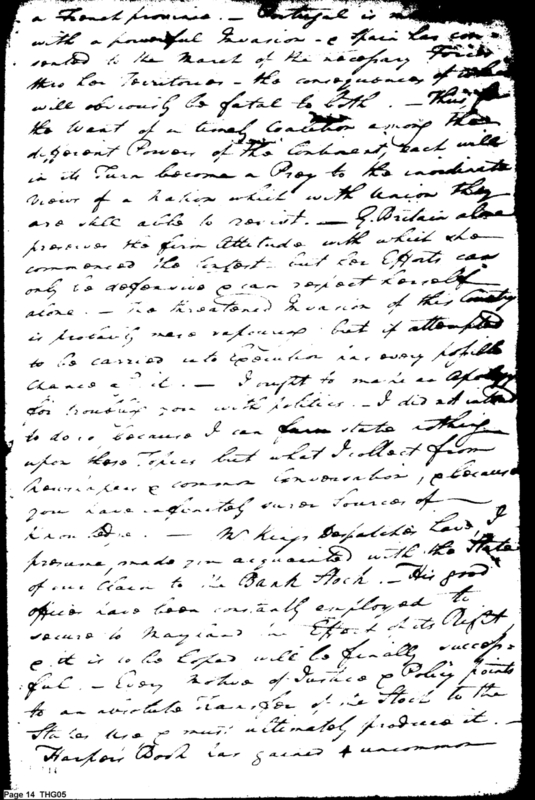 a French province. — Portugal is
with a powerful Invasion — & Spain has con-
sented to the March of the necessary Forces
thro her Territories — the consequences of which
will obviously be fatal to both. — Thus, for
the Want of a timely coalition among the
different Powers of the Continent, each will
in its Turn become a Prey to the inordinate
views of a Nation which with Union they
are still able to resist. — G. Britain alone
preserves the firm Attitude with which she
commenced the Contest — but her Efforts can
only be defensive & can respect herself
alone. — The threatened Invasion of this Country
is probably mere vapouring but if attempted
to be carried into Execution has every possible
chance it. — I ought to make an Apology
for troubling you with politics. — I did not intend
to do so because I can state nothing
upon these Topics but what I collect from
Newspapers & common Conversation, & because
you have infinitely surer Sources of
knowledge. — Mr Kings Despatches have, I
presume, made you acquainted with the State
of our Claim to the Bank Stock. — His good
offices have been constantly employed to
secure to Maryland the Effect of its Right,
& it is to be hoped will be finally success-
ful. — Every Motive of Justice & Policy points
to an absolute Transfer of the Stock to the
States use & must ultimately produce it. —
Harpers Book has gained uncommon
Page 14 THG05